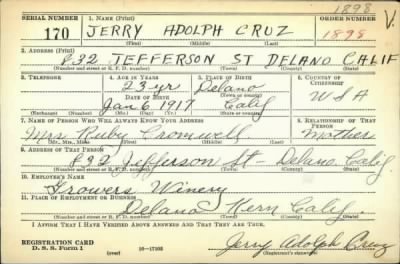 1898 V.
SERIAL NUMBER 1. NAME (Print) ORDER NUMBER
170 JERRY ADOLPH CRUZ 1898
(First) (Middle) (Last)
2. ADDRESS (Print)
832 JEFFERSON ST DELANO CALIF
(Number and street or R. F. D. number) (Town) (County) (State)
3. TELEPHONE 4. AGE IN YEARS 5. PLACE OF BIRTH 6. COUNTRY OF CITIZENSHIP
23-yr Delano
DATE OF BIRTH (Town or county)
Jan 6 1917 Calif U S A
(Exchange) (Number) (Mo.) (Day) (Yr.) (State or country)
7. NAME OF PERSON WHO WILL ALWAYS KNOW YOUR ADDRESS 8. RELATIONSHIP OF THAT PERSON
Mrs. Ruby Cromwell Mother
(Mr., Mrs., Miss) (First) (Middle) (Last)
9. ADDRESS OF THAT PERSON
832 Jefferson St - Delano, Calif
(Number and street or R. F. D. number) (Town) (County) (State)
10. EMPLOYER'S NAME
Growers Winery
11. PLACE OF EMPLOYMENT OR BUSINESS
Delano Kern Calif
(Number and street or R. F. D. number) (Town) (County) (State)
I AFFIRM THAT I HAVE VERIFIED ABOVE ANSWERS AND THAT THEY ARE TRUE.
REGISTRATION CARD
D. S. S. Form 1 (over) 16-17105 Jerry Adolph Cruz
(Registrant's signature)